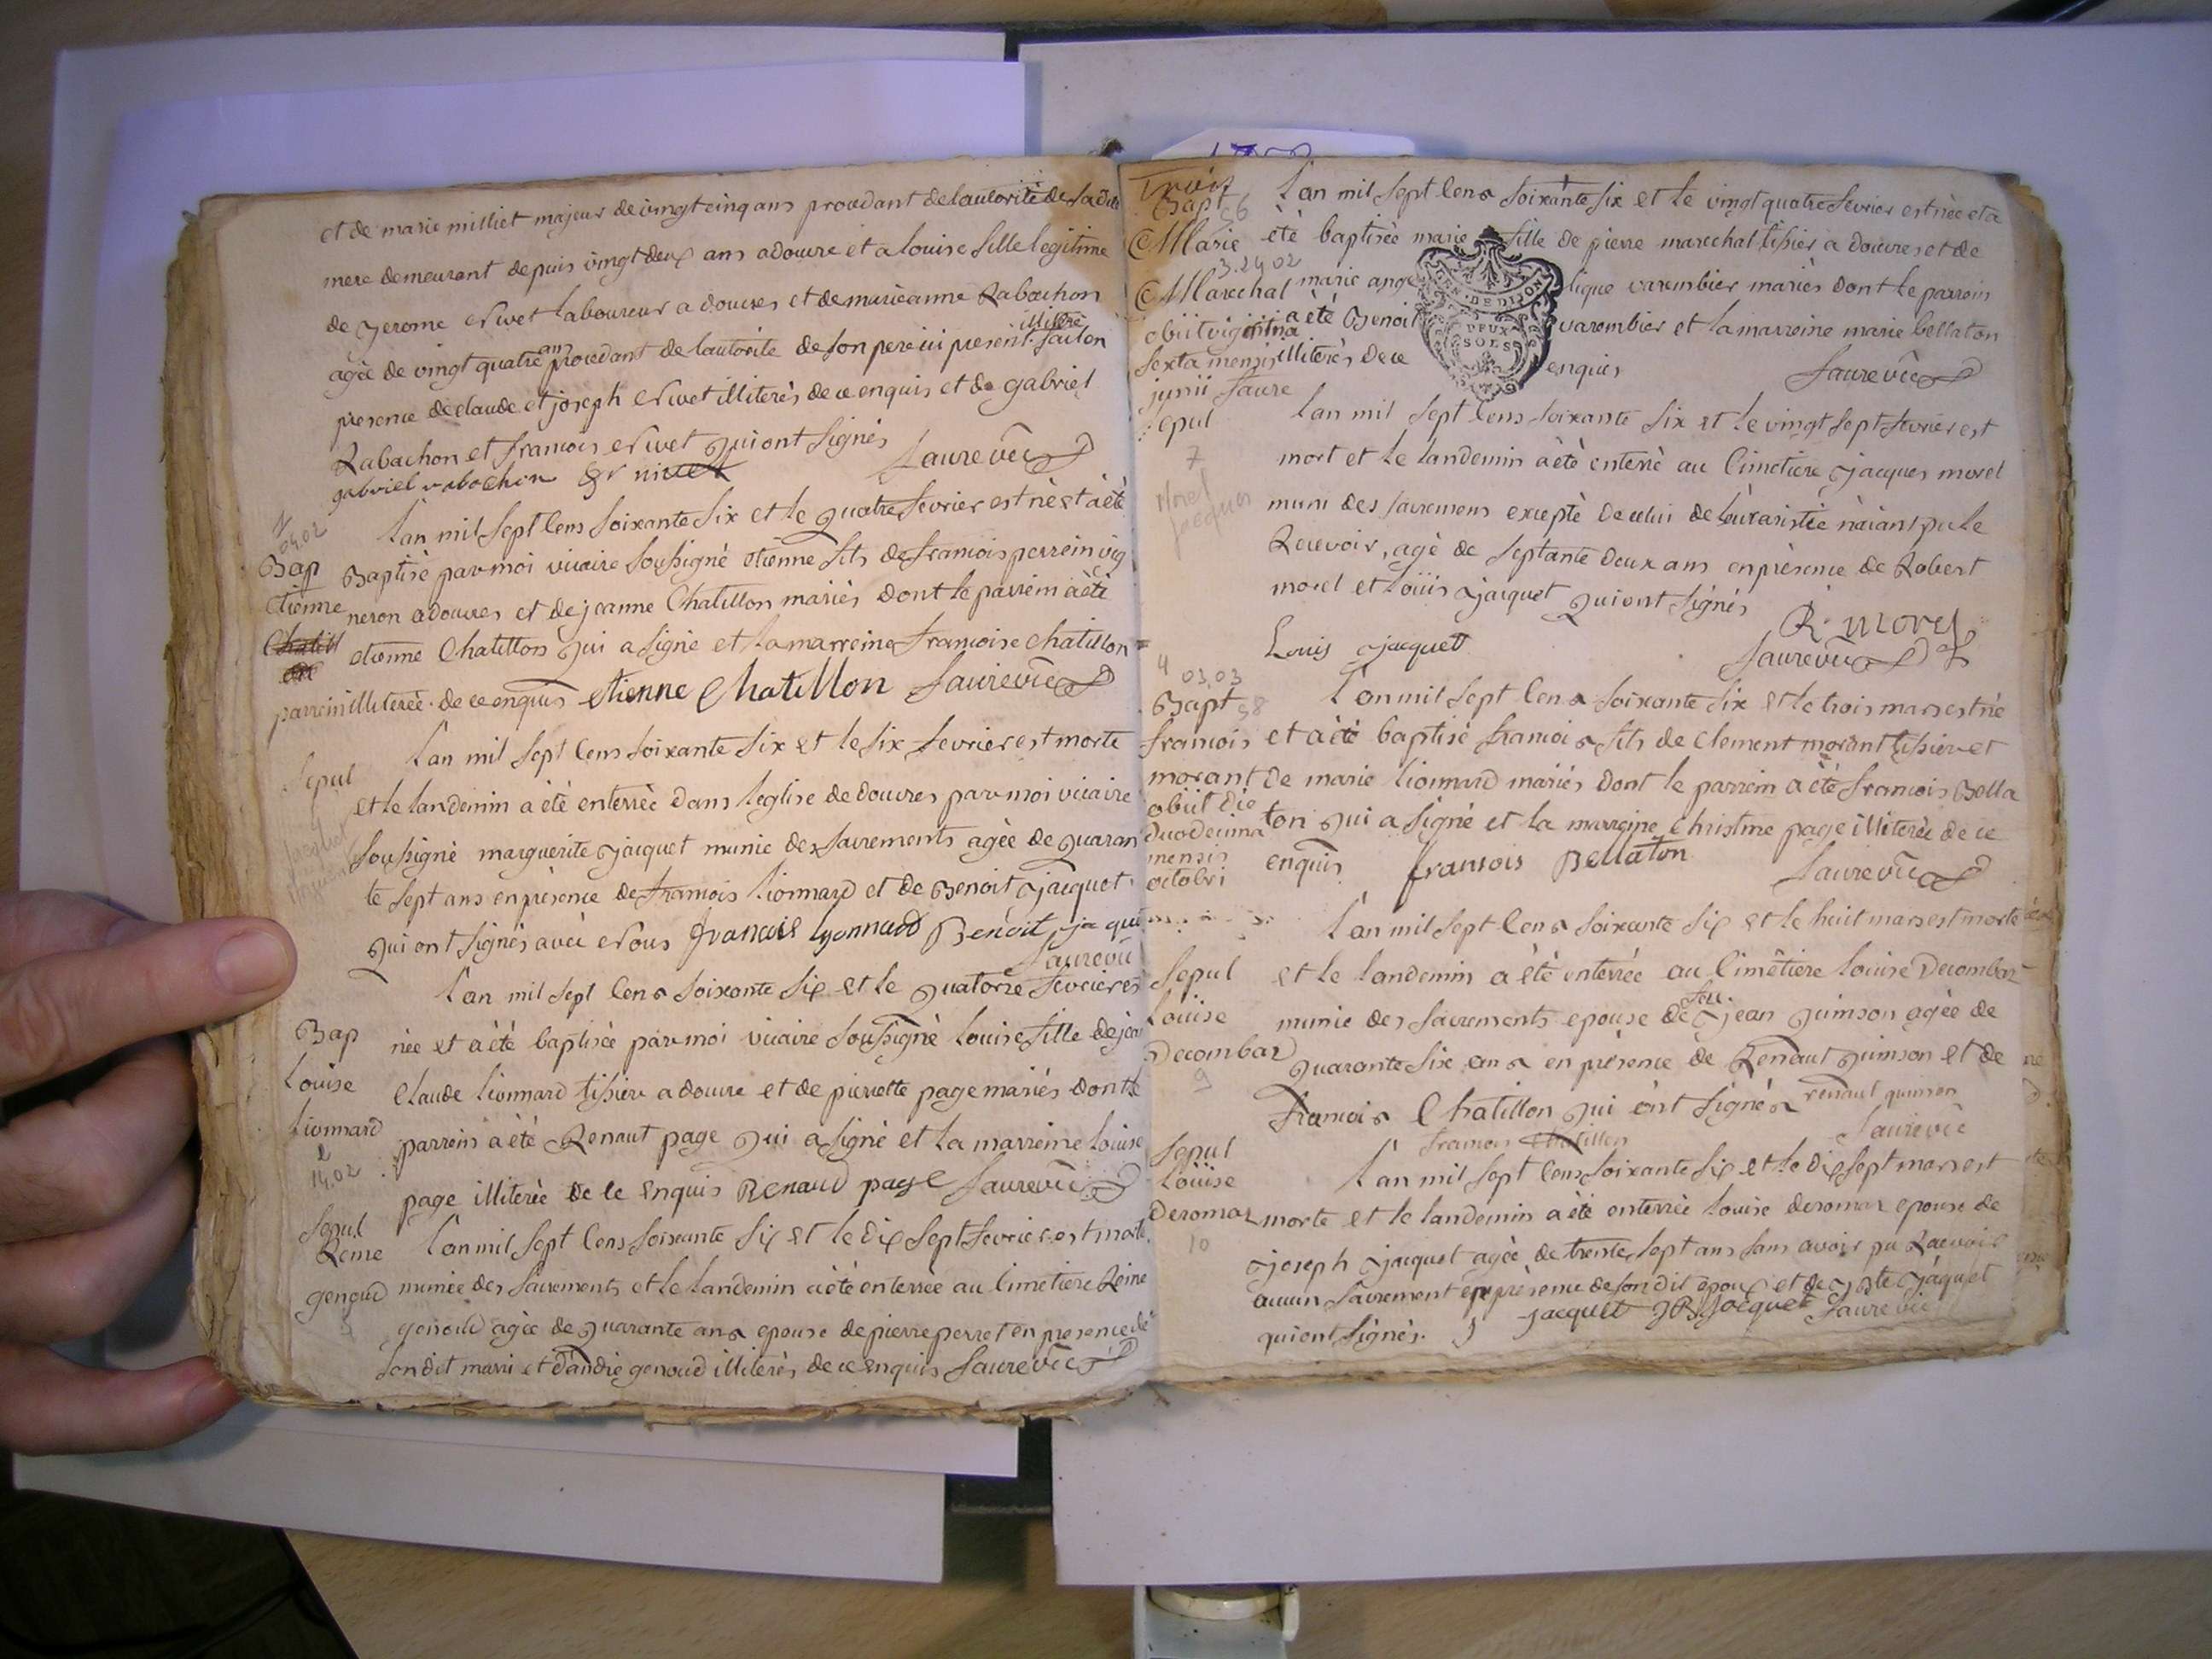 et de marie milliet majeur de vingt cinq ans procedant de lautorité de sa dite
mere demeurant depuis vingt deux ans a douvre et a louise fille legitime
de jerome nivet laboureur a douvres et de marieanne Rabachon
agée de vingt quatre ans procedant de lautorité de son pere ici present illiteré fait en
presence de claude et joseph nivet illiterés de ce enquis et de gabriel
Rabachon et francois nivet qui ont signés
gabriel rabochon fr nivet Faure vic
04.02
Bap
Etienne
perrein
L'an mil sept cens soixante six et le quatre fevrier est né et a été
Baptisé par moi vicaire soussigné etienne fils de francois perrein vig
neron a douvres et de jeanne Chatillon mariés dont le parrein a été
etienne Chatillon qui a signé et la marreine francoise chatillon
illiterée de ce enquis etienne Chatillon Faure vic
Sepul
jacquet
L'an mil sept cens soixante six et le six fevrier est morte
et le landemin a été enterrée dans l'eglise de douvres par moi vicaire
soussigné marguerite jacquet munie des sacrements agée de quaran
te sept ans en présence de francois lionnard et de Benoit jacquet
qui ont signés avec nous francois lyonnard Benoit jaque
Faure vic
Bap
Louise
Lionnard
2
14.02
L'an mil sept cens soixante six et le quatorze fevrier es
née et a été baptisée par moi vicaire soussigné louise fille de jea
claude lionnard tissier a douvre et de pierrette page mariés dont le
parrein a été Renaut page qui a signé et la marreine louise
page illiterée de ce enquis Renaud page Faure vic
Sepul
Reine
genoud
L'an mil sept cens soixante six et le dix sept fevrier est morte
muniée des sacrements et le landemin a été enterrée au cimetiere Reine
genoud agée de quarante ans epouse de pierre perret en presence de
son dit marri et d'andré genoud illiterés de ce enquis Faure vic
Trois
Bapt
Marie
3.24 02
Marechal
obiit vigesima
sexta mensis
junii Faure
L'an mil sept cens soixante six et le vingt quatre fevrier est née et a
été baptisée marie fille de pierre marechal tissier a douvres et de
marie angelique varembier mariés dont le parrein
a été Benoit varembier et la marreine marie bellaton
illiterés de ce enquis Faure vic
GEN. DE DIJON
DEUX
SOLS
Sepul
7
Morel
jacques
L'an mil sept cens soixante six et le vingt sept fevrier est
mort et le landemin a été enterré au cimetiere jacques morel
muni des sacremens excepté de celui de l'eucaristie n'aiant pu le
Recevoir, agé de septante deux ans en présence de Robert
morel et louis jacquet qui ont signés
R. morel
Louis jacquet Faure vic
4 03.03
Bapt 58
francois
morant
obiit die
duodecima
mensis
octobri
L'an mil sept cens soixante six et le trois mars est né
et a été baptisé francois fils de clement morant tissier et
de marie lionnard mariés dont le parrein a été francois Bella
ton qui a signé et la marreine christine page illiterée de ce
enquis fransois Bellaton Faure vic
Sepul
Louise
Decombaz
9
L'an mil sept cens soixante six et le huit mars est morte
et le landemin a été enterrée au cimêtiere louise Decombaz
munie des sacrements epouse de feu jean quinson agée de
quarante six ans en présence de Renaut quinson et de
francois Chatillon qui ont signés renaut quinson
francois Chatillon Faure vic
Sepul
Louise
Deromaz
10
L'an mil sept cens soixante six et le dix sept mars est
morte et le landemin a été enterrée louise deromaz epouse de
joseph jacquet agée de trente sept ans sans avoir pu Recevoir
aucun sacrement en présence de son dit epoux et de jn bte jaquet
qui ont signés. j jacquet JB jacquet Faure vic